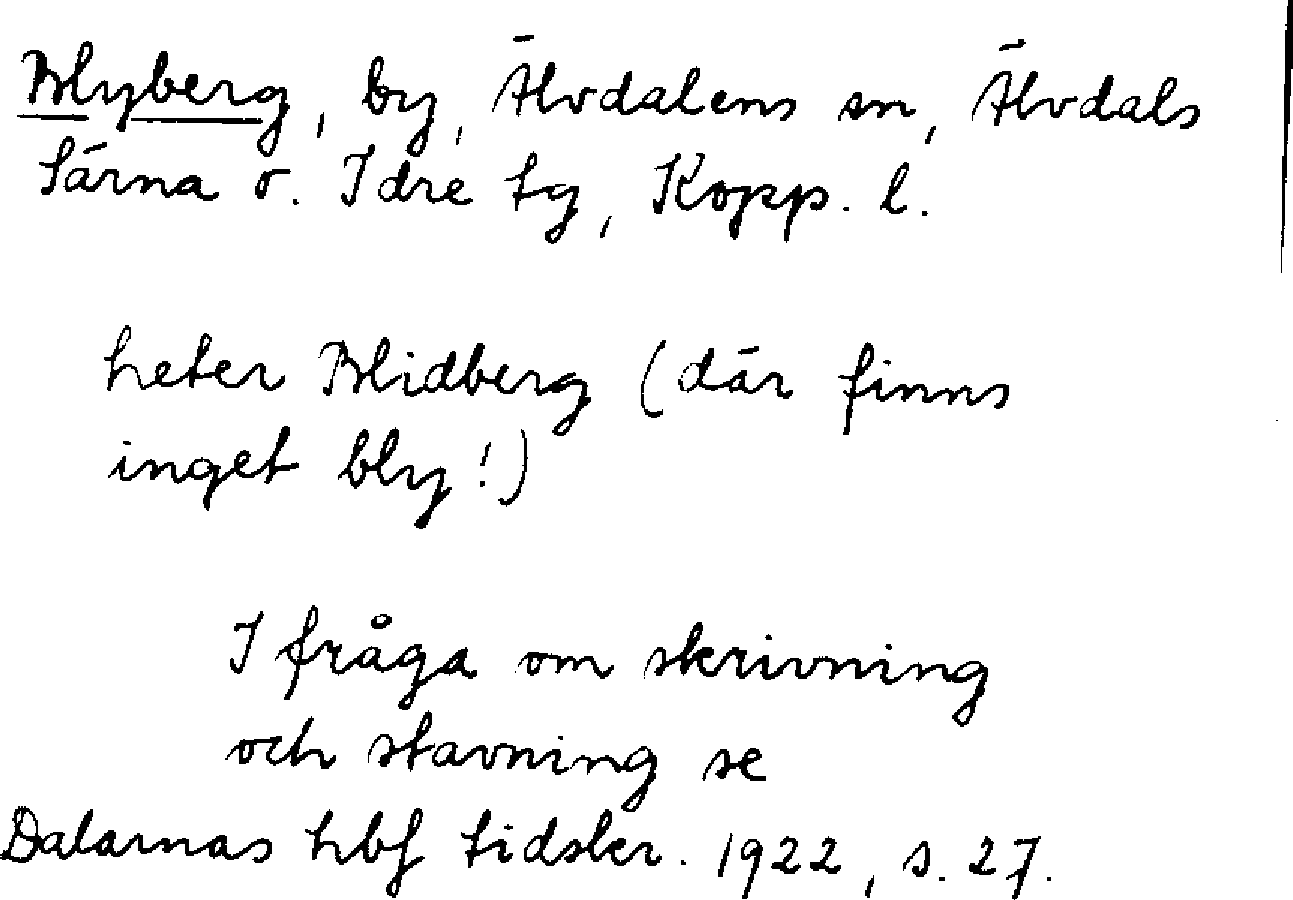 Blyberg, by, Älvdalens sn, Älvdals
Särna o. Idre tg, Kopp. l.
heter Blidberg (där finns
inget bly!)
I fråga om skrivning
och stavning se
Dalarnas hbf tidskr. 1922, s. 27.